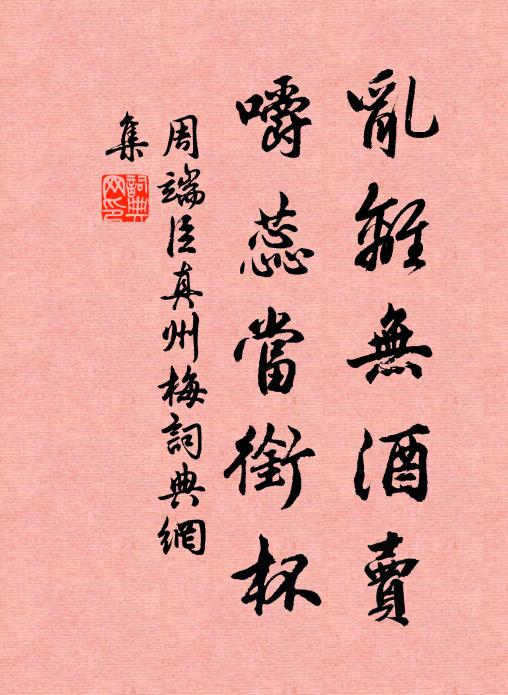 亂離無酒賣
嚼蕊當銜杯
周端臣真州梅詞典網
集
詞典網印